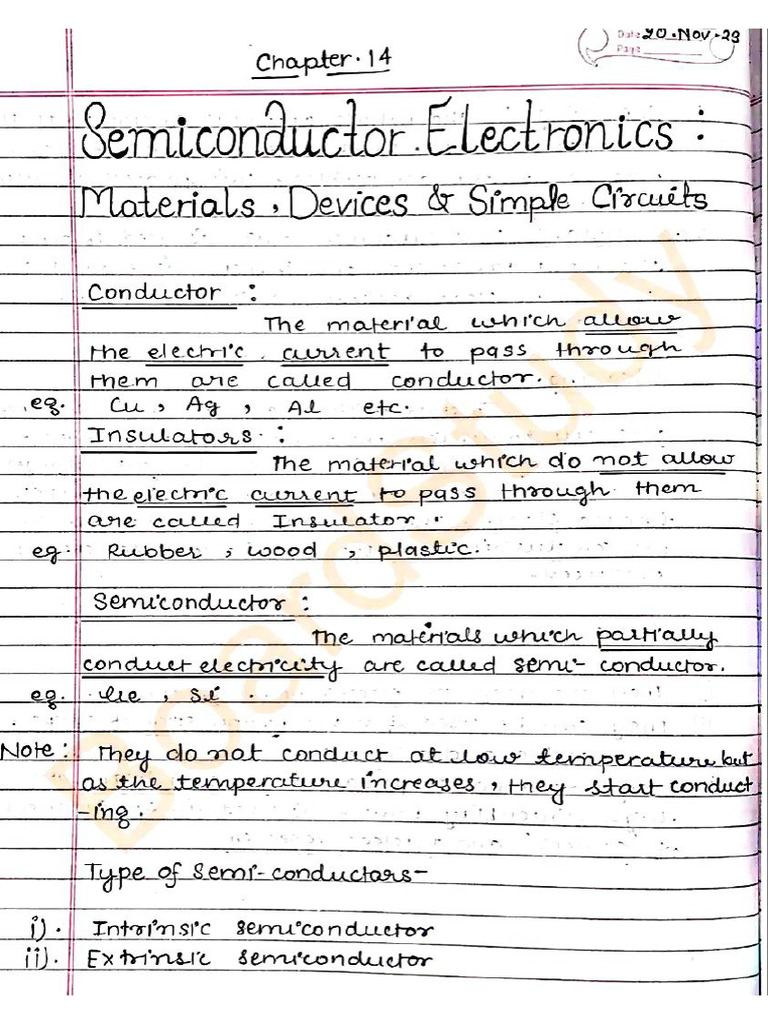 Date 20.Nov.23
Page
Chapter.14
Semiconductor Electronics:
Materials, Devices & Simple Circuits
Conductor :
The material which allow
the electric current to pass through
them are called conductor.
eg. Cu, Ag, Al etc.
Insulators :
The material which do not allow
the electric current to pass through them
are called Insulator.
eg. Rubber, wood, plastic.
Semiconductor :
The materials which partially
conduct electricity are called semi-conductor.
eg. Ge, Si.
Note: They do not conduct at low temperature but
as the temperature increases, they start conduct
-ing.
Type of semi-conductors-
i). Intrinsic semiconductor
ii). Extrinsic semiconductor
BoardStudy